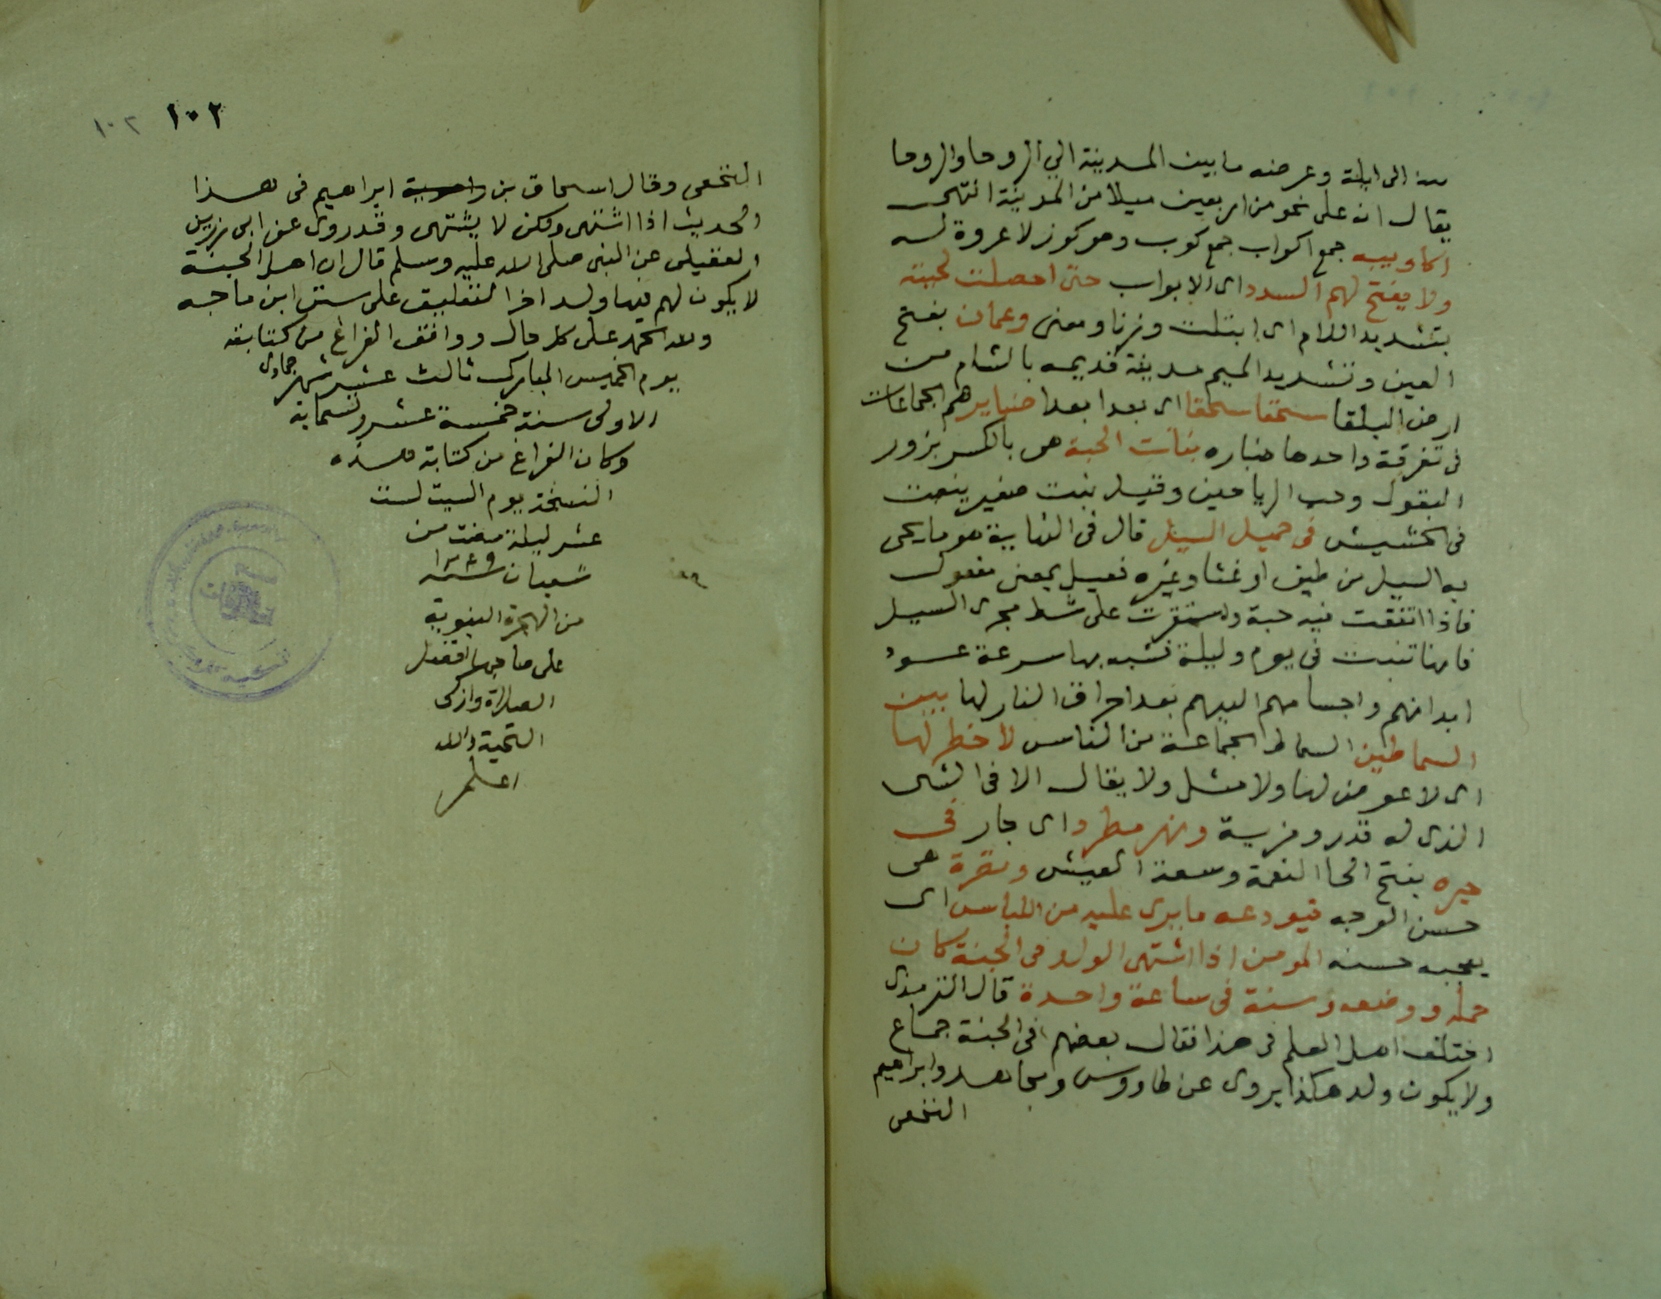 الى ايلة وعرضه ما بين المدينة الي الروحا والروحا
يقال انه على نحو من اربعين ميلا من المدينة انتهى
اكاويبه جمع اكواب جمع كوب وهو كوز لا عروة له
ولا يفتح لهم السدد اى الابواب حتى اخضلت لحيته
بتشديد اللام اى ابتلت وزنا ومعنى وعمان بفتح
العين وتشديد الميم مدينة قديمه بالشام من
ارض البلقا سحقا سحقا اى بعدا بعدا ضباير هم الجماعات
فى تفرقة واحدها ضباره بنات الحبة هى بالكسر بزور
البقول وحب الرياحين وقيل نبت صغير ينبت
فى الحشيش فى حميل السيل قال فى النهاية هو ما يجى
به السيل من طين او غثا وغيره فعيل بمعنى مفعول
فاذا اتفقت فيه حبة واستقرت على شط مجرى السيل
فانها تنبت فى يوم وليلة فشبه بها سرعة عود
ابدانهم واجسامهم اليهم بعد احراق النار لها بين
السماطين السماط الجماعة من الناس لا خطر لها
اى لا عوض لها ولا مثل ولا يقال الا فى الشى
الذى له قدر ومزية ونهر مطرد اى جار فى
حبره بفتح الحا النعمة وسعة العيش ونضرة هى
حسن الوجه فيودعه ما يرى عليه من اللباس اى
يعجبه حسنه المومن اذا اشتهى الولد فى الجنة كان
حمله ووضعه وسنه فى ساعة واحدة قال الترمذى
اختلف اهل العلم فى هذا فقال بعضهم فى الجنة جماع
ولا يكون ولد هكذا يروى عن طاووس ومجاهد وابراهيم
النخعى
١٠٢ ١٠٢
النخعى وقال اسحاق بن ابراهيم فى هذا
الحديث اذا اشتهى ولكن لا يشتهى وقد روى عن ابى رزين
العقيلى عن النبى صلى الله عليه وسلم قال ان اهل الجنة
لا يكون لهم فيها ولد اخر التعليق على سنن ابن ماجه
ولله الحمد على كل حال ووافق الفراغ من كتابته
يوم الخميس المبارك ثالث عشر شهر جمادى
الاولى سنة خمسة عشر وتسماية
وكان الفراغ من كتابة هذه
النسخة يوم السبت لست
عشر ليلة مضت من
شعبان سنة ١٣٤٩
من الهجرة النبوية
على صاحبها افضل
الصلاة وازكى
التحية والله
اعلم